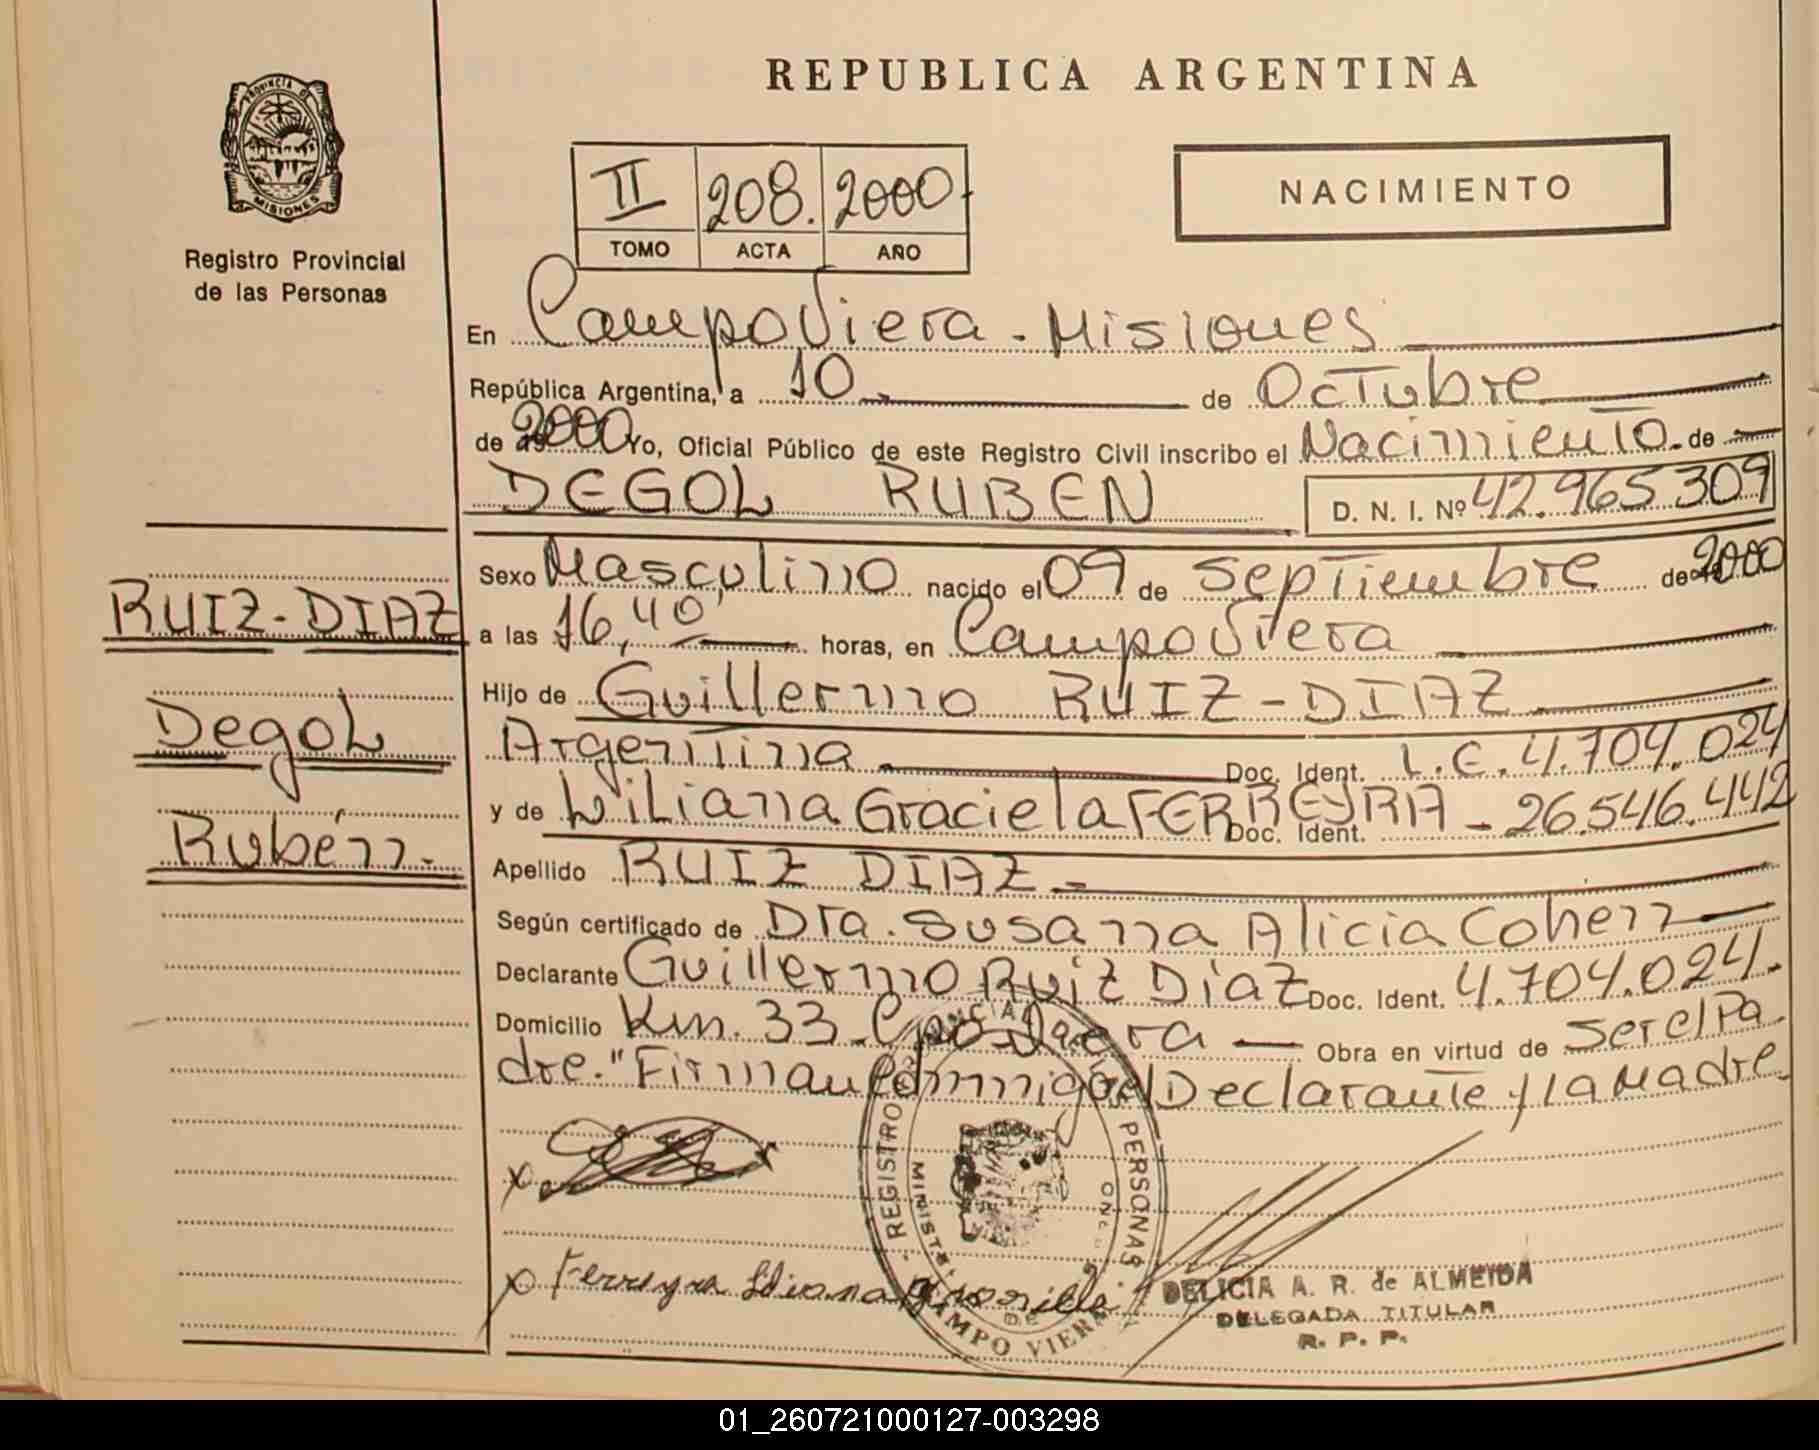 REPUBLICA ARGENTINA
PROVINCIA DE
MISIONES
Registro Provincial
de las Personas
II 208. 2000
TOMO ACTA AÑO
NACIMIENTO
En Campo Viera - Misiones
República Argentina, a 10 de Octubre
de 2000 Yo, Oficial Público de este Registro Civil inscribo el Nacimiento. de
DEGOL RUBEN D. N. I. Nº 42.965.309
Sexo Masculino nacido el 09 de septiembre de 2000
a las 16,40 horas, en Campo Viera
Hijo de Guillermo RUIZ-DIAZ
Argentina Doc. Ident. L.E. 4.704.024
y de Liliana Graciela FERREYRA Doc. Ident. - 26.546.442
Apellido RUIZ DIAZ
Según certificado de Dra. Susana Alicia Cohen
Declarante Guillermo Ruiz Diaz Doc. Ident. 4.704.024.
Domicilio Km. 33 - Cpo Viera Obra en virtud de ser el Pa
dre." Firman conmigo el Declarante y la Madre
RUIZ-DIAZ
Degol
Rubén.
x
x Ferreyra Liliana Graciela
REGISTRO PROVINCIAL PERSONAS
MINIST
CAMPO VIERA
DELICIA A. R. de ALMEIDA
DELEGADA TITULAR
R. P. P.
01_260721000127-003298